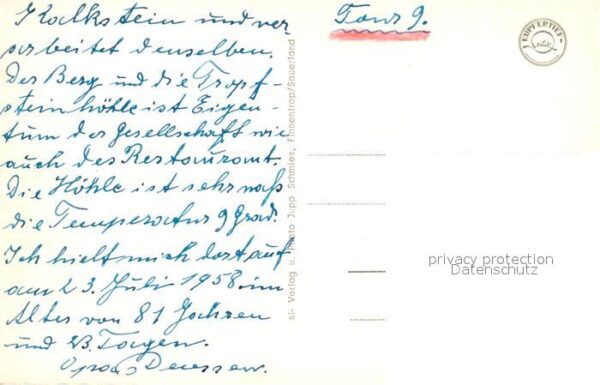 Kalkstein und ver
arbeitet denselben.
Der Berg und die Tropf-
steinhöhle ist Eigen-
tum der Gesellschaft wie
auch des Restaurant.
Die Höhle ist sehr naß
die Temperatur 9 Grad.
Ich hielt mich dort auf
am 23. Juli 1958 im
Alter von 81 Jahren
und 23. Tagen.
Opa Deussen.
Tour 9.
KUPFERTIEF
Verlag u. Photo Jupp Schmies, Finnentrop/Sauerland
privacy protection
Datenschutz